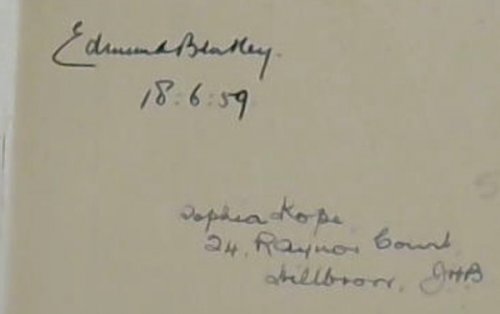 Edmund Bentley.
18:6:59
Sophia Kope
24, Raynor Court
Hillbrow, JHB